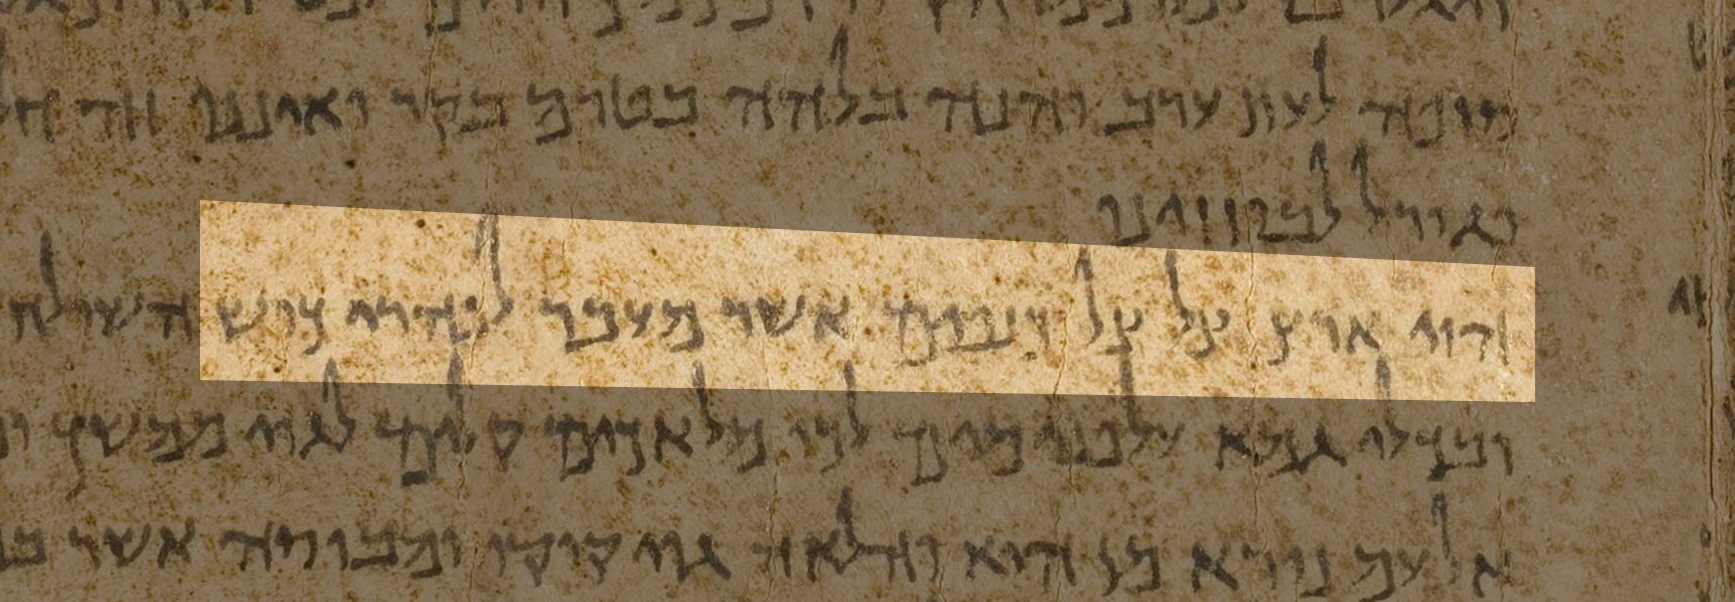 סופה לעת ערב והנה בלהה בטרם בקר ואיננו זה חל
וגורל לבוזזינו
הוי ארץ צל צל כנפים אשר מעבר לנהרי כוש השולח
ובכלי גמא על פני מים לכו מלאכים קלים לגוי ממשך
אל עם נורא מן הוא והלאה גוי קוקו ומבוסה אשר